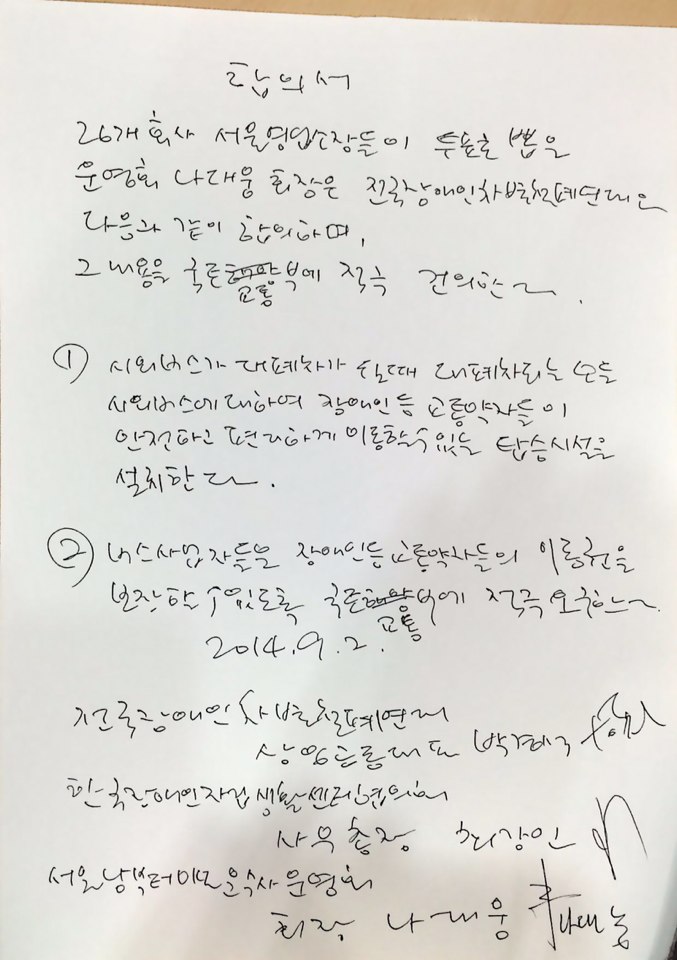 합의서
26개 회사 서울영업소장들이 투표로 뽑은
운영회 나대웅 회장은 전국장애인차별철폐연대는
다음과 같이 합의하며,
그 내용을 국토교통부에 적극 건의한다.
① 시외버스가 대폐차가 될때 대폐차되는 모든
시외버스에 대하여 장애인등 교통약자들이
안전하고 편리하게 이동할수있는 탑승시설을
설치한다.
② 버스사업자들은 장애인등교통약자들의 이동권을
보장할 수있도록 국토교통부에 적극 요구한다.
2014. 9. 2.
전국장애인차별철폐연대
상임공동대표 박경석
한국장애인자립생활센터협의회
사무총장 최강민
서울남부터미널운수사운영회
회장 나대웅 나대웅